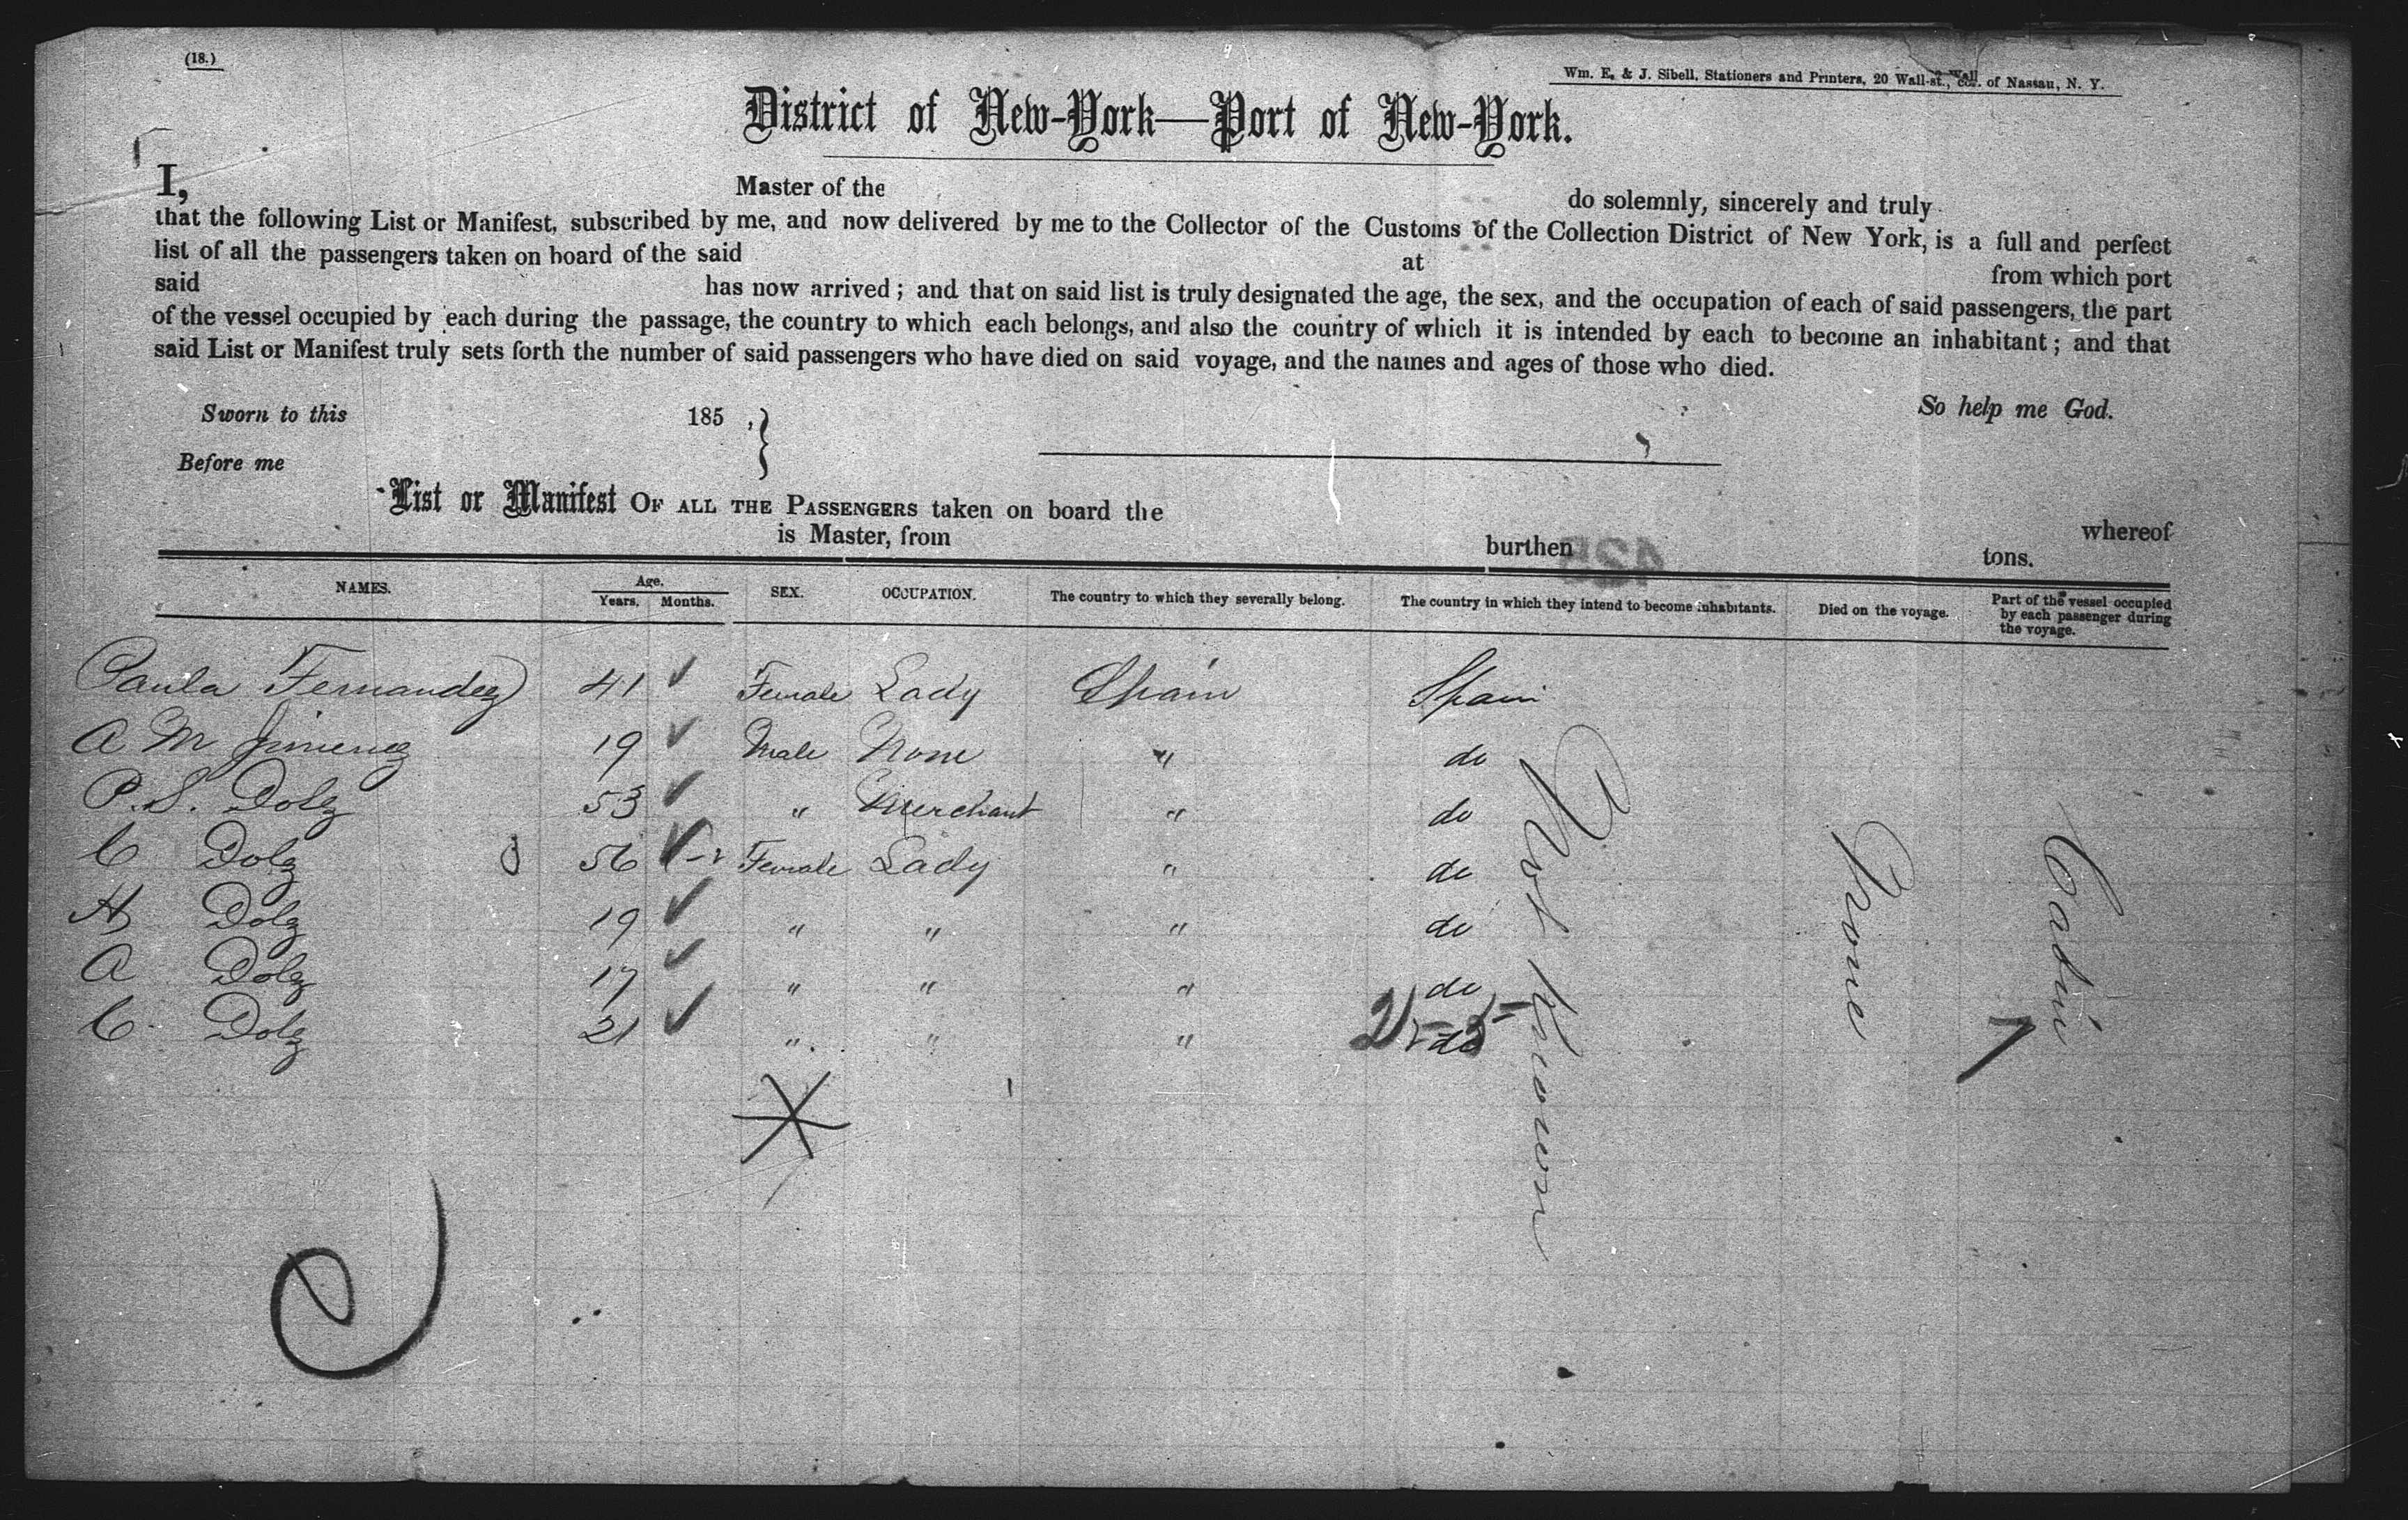 (18.)
Wm. E. & J. Sibell, Stationers and Printers, 20 Wall-st., cor. of Nassau, N. Y.
District of New-York—Port of New-York.
I, Master of the do solemnly, sincerely and truly
that the following List or Manifest, subscribed by me, and now delivered by me to the Collector of the Customs of the Collection District of New York, is a full and perfect
list of all the passengers taken on board of the said at from which port
said has now arrived; and that on said list is truly designated the age, the sex, and the occupation of each of said passengers, the part
of the vessel occupied by each during the passage, the country to which each belongs, and also the country of which it is intended by each to become an inhabitant; and that
said List or Manifest truly sets forth the number of said passengers who have died on said voyage, and the names and ages of those who died.
Sworn to this 185 , So help me God.
Before me
List or Manifest OF ALL THE PASSENGERS taken on board the whereof
is Master, from burthen tons.
NAMES. Age. Years. Months. SEX. OCCUPATION. The country to which they severally belong. The country in which they intend to become inhabitants. Died on the voyage. Part of the vessel occupied by each passenger during the voyage.
Paula Fernandez 41 Female Lady Spain Spain
A M Jimenez 19 Male None " do
P. S. Dolz 53 " Merchant " do
C Dolz 56 Female Lady " do
A Dolz 19 " " " do
A Dolz 17 " " " do
C Dolz 21 " " " do
Not Known
None
Cabin
7